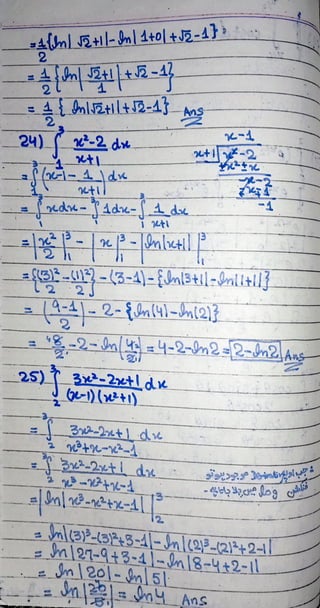 = 1/2 {ln|√2+1| - ln|1+0| + √2-1}
= 1/2 {ln|√2+1 / 1| + √2-1}
= 1/2 {ln|√2+1| + √2-1} Ans
24) ∫₁³ x²-2 / x+1 dx
x-1
x+1 √x²-2
±x²±x
-x-2
∓x∓1
-1
= ∫₁³ (x-1 - 1/x+1) dx
= ∫₁³ xdx - ∫₁³ 1dx - ∫₁³ 1/x+1 dx
= |x²/2|₁³ - |x|₁³ - |ln|x+1||₁³
= {(3)²/2 - (1)²/2} - (3-1) - {ln|3+1| - ln|1+1|}
= (9-1 / 2) - 2 - {ln|4| - ln|2|}
= 8/2 - 2 - ln(4/2) = 4-2-ln2 = 2-ln2 Ans
25) ∫₂³ 3x²-2x+1 / (x-1)(x²+1) dx
= ∫₂³ 3x²-2x+1 / x³+x-x²-1 dx
= ∫₂³ 3x²-2x+1 / x³-x²+x-1 dx
= |ln|x³-x²+x-1||₂³
= ln|(3)³-(3)²+3-1| - ln|(2)³-(2)²+2-1|
= ln|27-9+3-1| - ln|8-4+2-1|
= ln|20| - ln|5|
= ln|20/5| = ln4 Ans